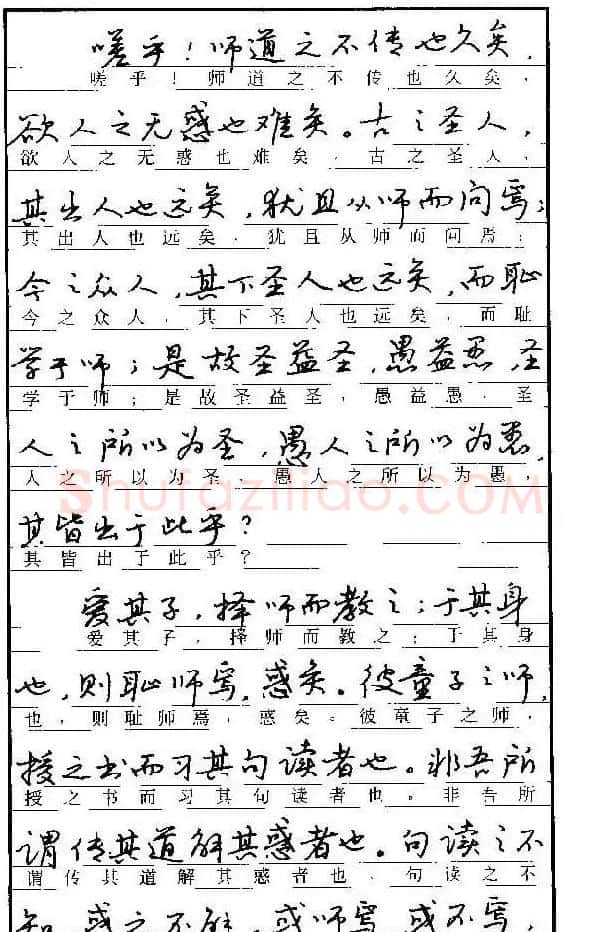 嗟乎！师道之不传也久矣，
嗟乎！师道之不传也久矣，
欲人之无惑也难矣。古之圣人，
欲人之无惑也难矣。古之圣人，
其出人也远矣，犹且从师而问焉；
其出人也远矣，犹且从师而问焉；
今之众人，其下圣人也远矣，而耻
今之众人，其下圣人也远矣，而耻
学于师；是故圣益圣，愚益愚，圣
学于师；是故圣益圣，愚益愚，圣
人之所以为圣，愚人之所以为愚，
人之所以为圣，愚人之所以为愚，
Shufaziliao.COM
其皆出于此乎？
其皆出于此乎？
爱其子，择师而教之；于其身
爱其子，择师而教之；于其身
也，则耻师焉，惑矣。彼童子之师，
也，则耻师焉，惑矣。彼童子之师，
授之书而习其句读者也。非吾所
授之书而习其句读者也。非吾所
谓传其道解其惑者也。句读之不
谓传其道解其惑者也。句读之不
知，惑之不解，或师焉，或不焉，